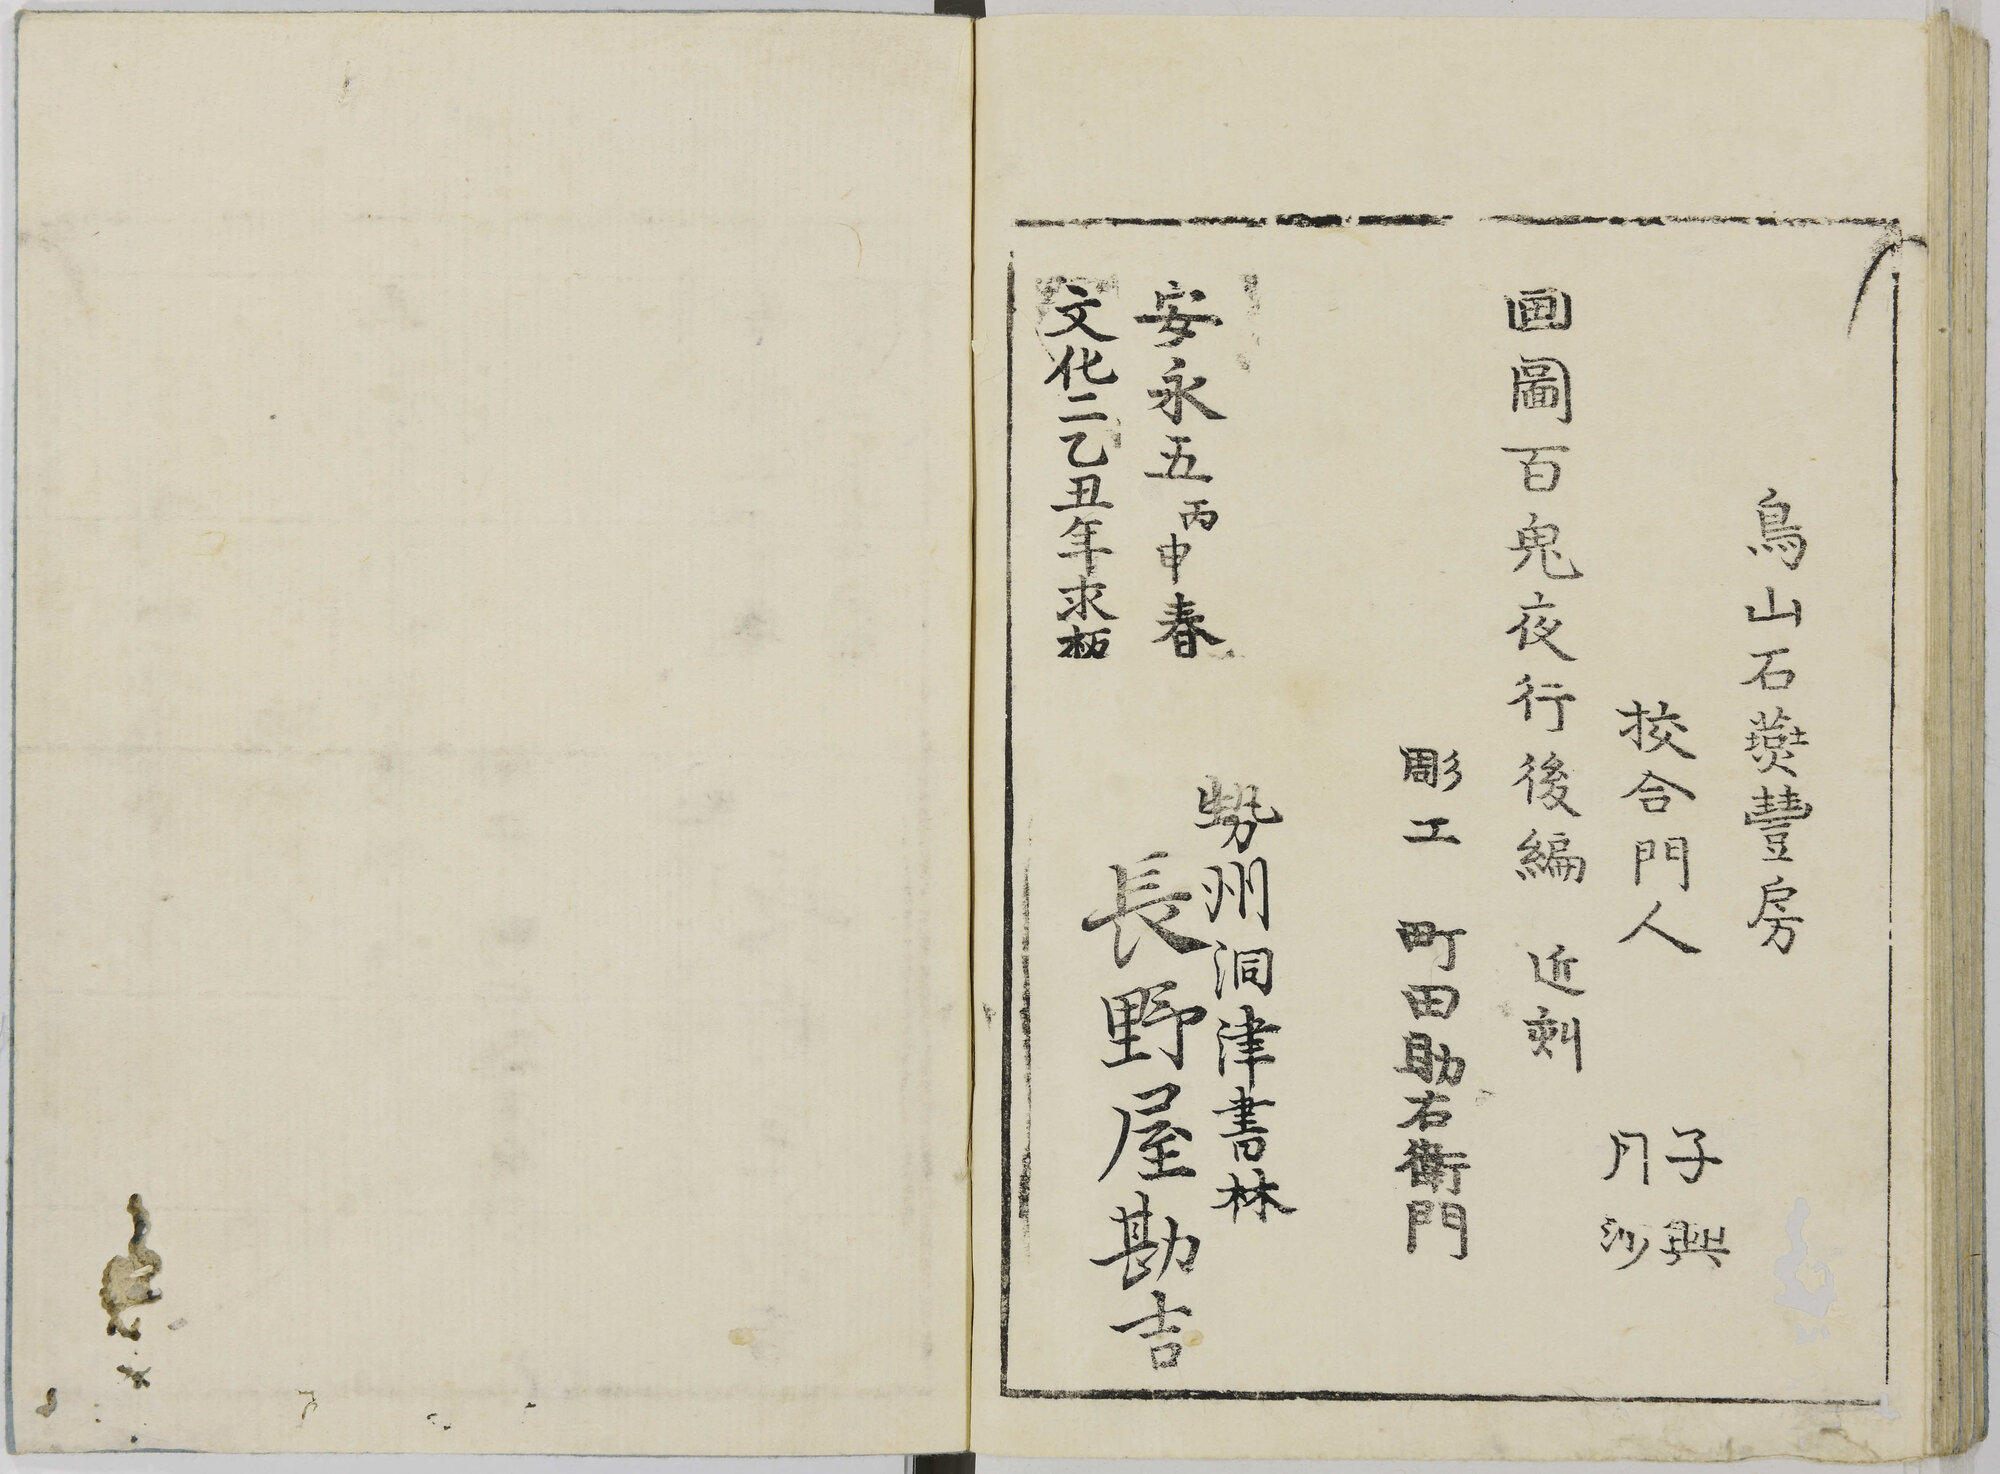 鳥山石燕豐房
校合門人 子興
月沙
画圖百鬼夜行後編 近刻
彫工 町田助右衛門
安永五丙申春
文化二乙丑年求板
勢州洞津書林
長野屋勘吉